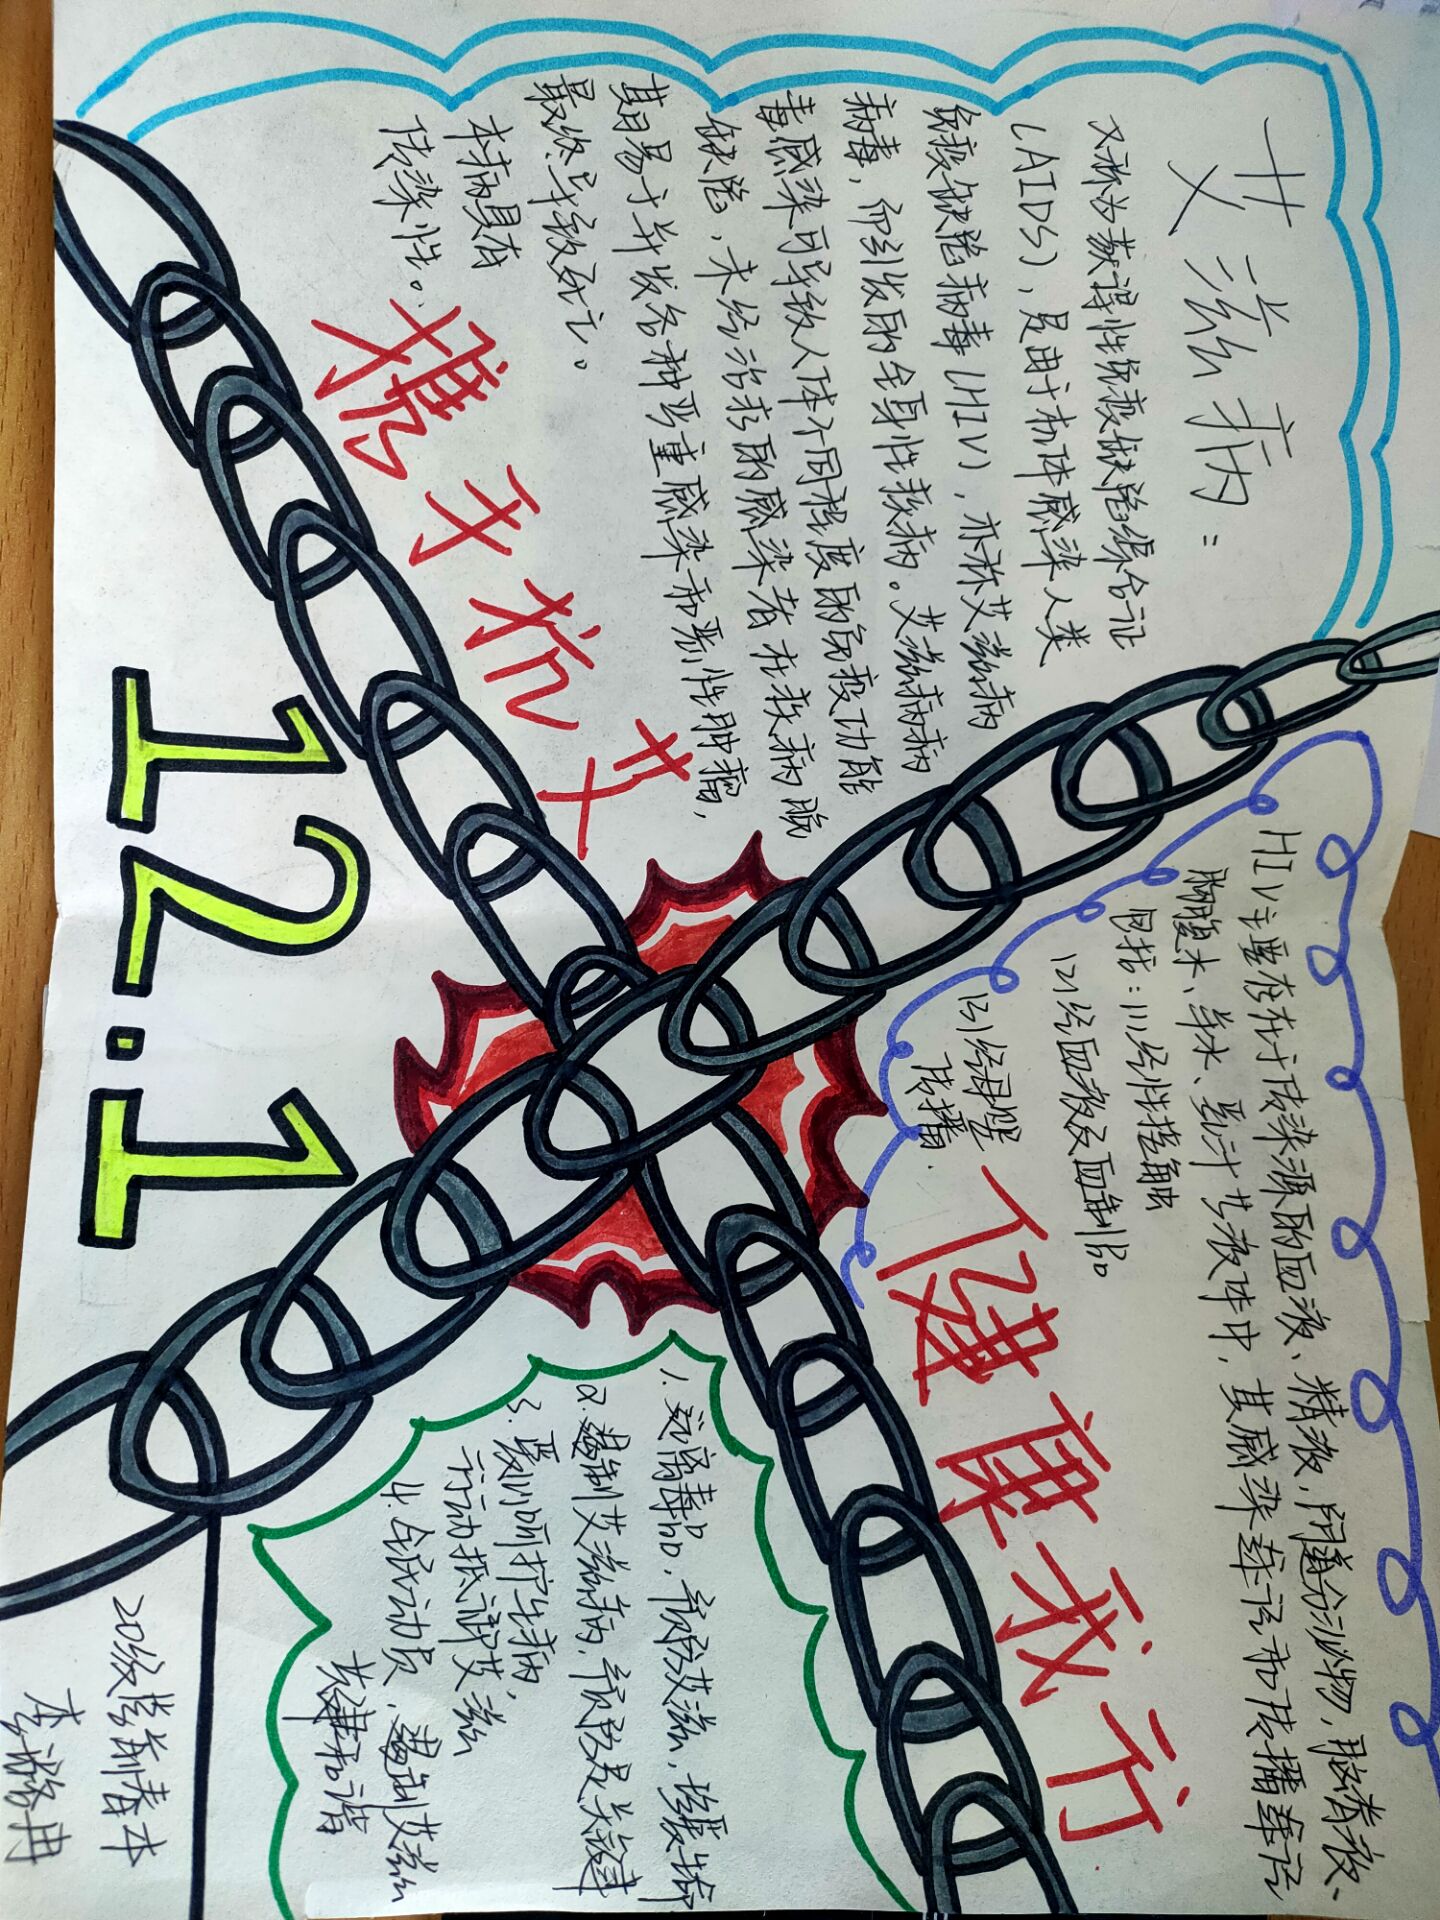 艾滋病:
又称为获得性免疫缺陷综合证
(AIDS),是由于机体感染人类
免疫缺陷病毒(HIV),亦称艾滋病
病毒,而引发的全身性疾病。艾滋病病
毒感染可导致人体不同程度的免疫功能
缺陷,未经治疗的感染者在疾病晚
期易于并发各种严重感染和恶性肿瘤,
最终导致死亡。
本病具有
传染性。
携手抗艾
12.1
HIV主要存在于传染源的血液、精液,阴道分泌物,脑脊液、
胸腹水、羊水、乳汁等液体中,其感染途径和传播途径
包括:(1)经性接触
(2)经血液及血制品
(3)经母婴
传播.
健康我行
1.远离毒品,预防艾滋,
2.遏制艾滋病,预防是关键
3.
行动抵御艾滋
4.全民动员,遏制艾滋
共建和谐
20级学前春本